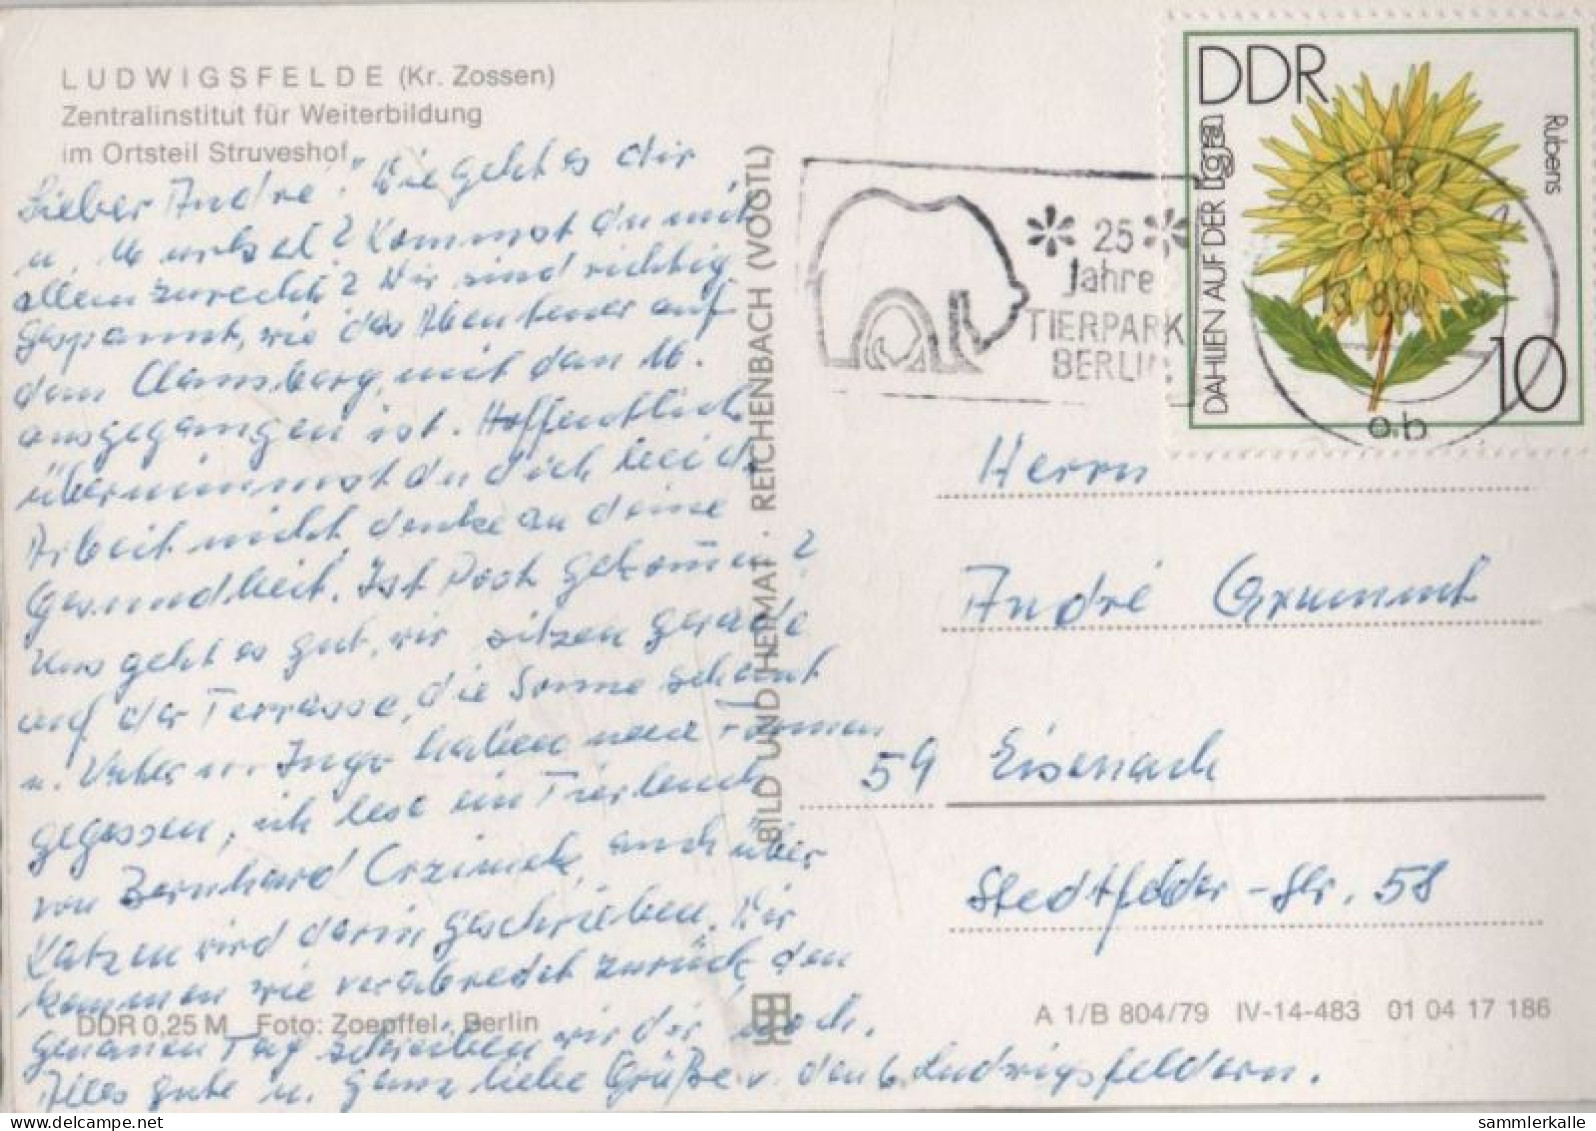 LUDWIGSFELDE (Kr. Zossen)
Zentralinstitut für Weiterbildung
im Ortsteil Struveshof
Lieber Andre! Wie geht es dir
u. Kommst du mit
allem zurecht? Wir sind richtig
gespannt, wie das Abenteuer auf
dem mit den 16.
ausgegangen ist. Hoffentlich
übernimmst du dich bei d.
Arbeit nicht, denke an deine
Gesundheit. Ist Post gekommen?
Uns geht es gut, wir sitzen gerade
auf der Terrasse, die Sonne scheint
u. Vater u. Ingo haben neue
gegessen, ich lese ein Tierbuch
von Bernhard Grzimek, auch über
Katzen wird darin geschrieben. Wir
kommen wie verabredet zurück, den
genauen Tag schreiben wir dir noch.
Alles gute u. ganz liebe Grüße v. den 6 Ludwigsfeldern.
DDR 0,25 M Foto: Zoepffel, Berlin
BILD UND HEIMAT · REICHENBACH (VOGTL)
25
Jahre
TIERPARK
BERLIN
DDR
DAHLIEN AUF DER iga
Rubens
10
13.8.80
ob
Herrn
André Grummt
59 Eisenach
Stedtfelder-Str. 58
A 1/B 804/79 IV-14-483 01 04 17 186
www.delcampe.net
sammlerkalle